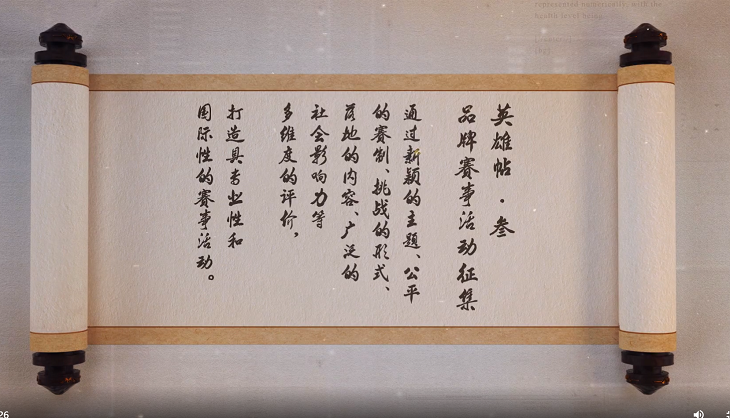 英雄帖·叁
品牌赛事活动征集
通过新颖的主题、公平
的赛制、挑战的形式、
落地的内容、广泛的
社会影响力等
多维度的评价，
打造具专业性和
国际性的赛事活动。
represented numerically, with the
health level being
26